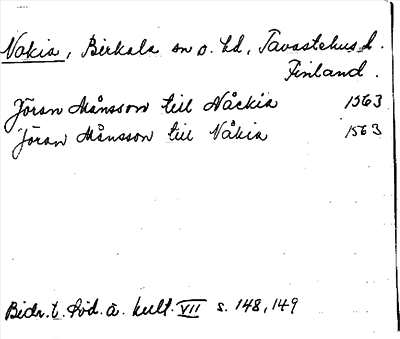 Nokia, Birkala sn o. hd, Tavastehus l.
Finland.
Jöran Månsson till Nåckia 1563
Jöran Månsson till Nåkia 1563
Bidr. t. Söd. Ö. kult. VII s. 148, 149